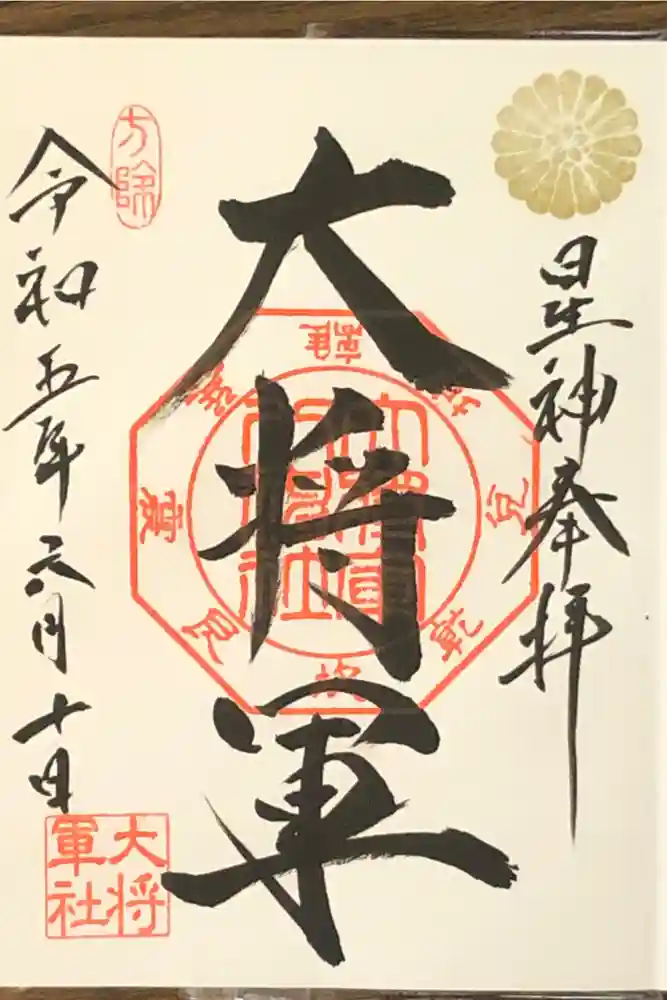 星神奉拝
大将軍
離
坤
兌
乾
坎
艮
震
方除
令和五年六月十日
大将
軍社